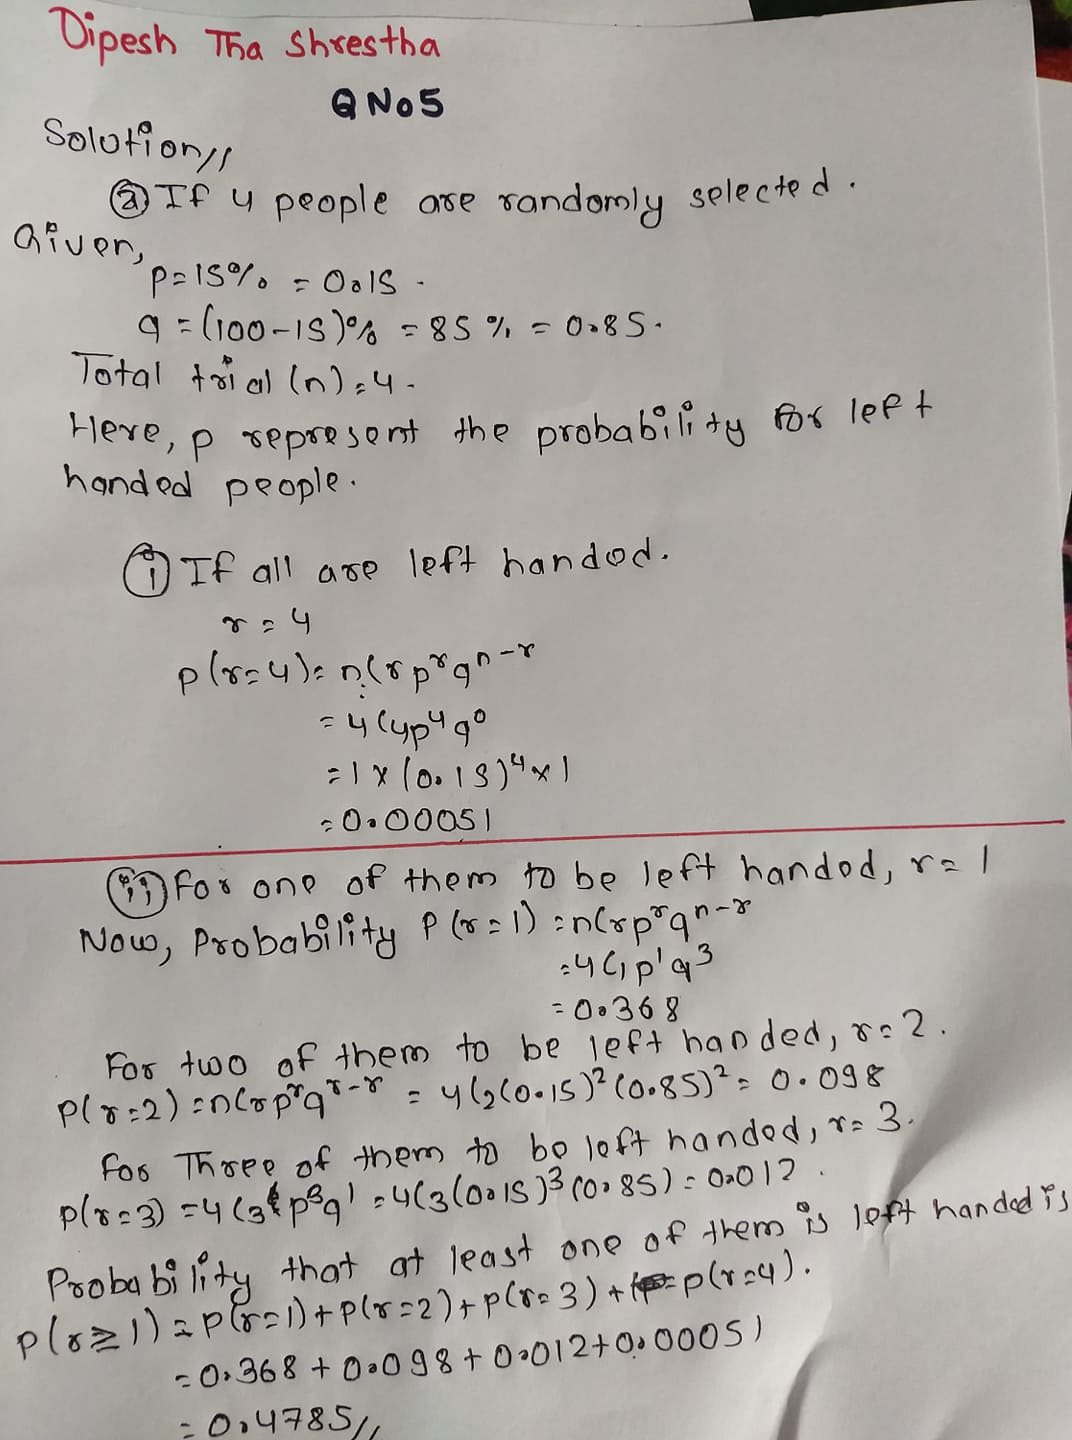 Dipesh Tha Shrestha
Q No 5
Solution//
(a) If 4 people are randomly selected.
Given,
p = 15% = 0.15.
q = (100-15)% = 85% = 0.85.
Total trial (n) = 4.
Here, p represent the probability for left
handed people.
(i) If all are left handed.
r = 4
p(r=4) = nCr p^r q^n-r
= 4C4 p^4 q^0
= 1 x (0.15)^4 x 1
= 0.00051
(ii) For one of them to be left handed, r = 1
Now, Probability P(r=1) = nCr p^r q^n-r
= 4C1 p^1 q^3
= 0.368
For two of them to be left handed, r = 2.
P(r=2) = nCr p^r q^r-r = 4C2 (0.15)^2 (0.85)^2 = 0.098
For Three of them to be left handed, r = 3.
p(r=3) = 4C3 p^3 q^1 = 4C3 (0.15)^3 (0.85) = 0.012.
Probability that at least one of them is left handed is
p(r≥1) = p(r=1) + p(r=2) + p(r=3) + p(r=4).
= 0.368 + 0.098 + 0.012 + 0.00051
= 0.4785//